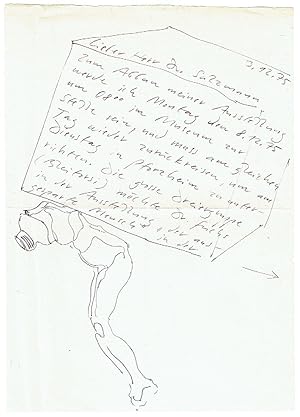 2.12.75
Lieber Herr Dr. Salzmann
Zum Abbau meiner Ausstellung
werde ich Montag dem 8.12.75
um 0800 im Museum zur
Stelle sein, und muss am gleichen
Tag wieder zurückreisen, um am
Dienstag in Pforzheim zu unter-
richten. Die grosse Dreiergruppe
(Bleifarbig) möchte Dr. Fuchs
in der Ausstellung
in der